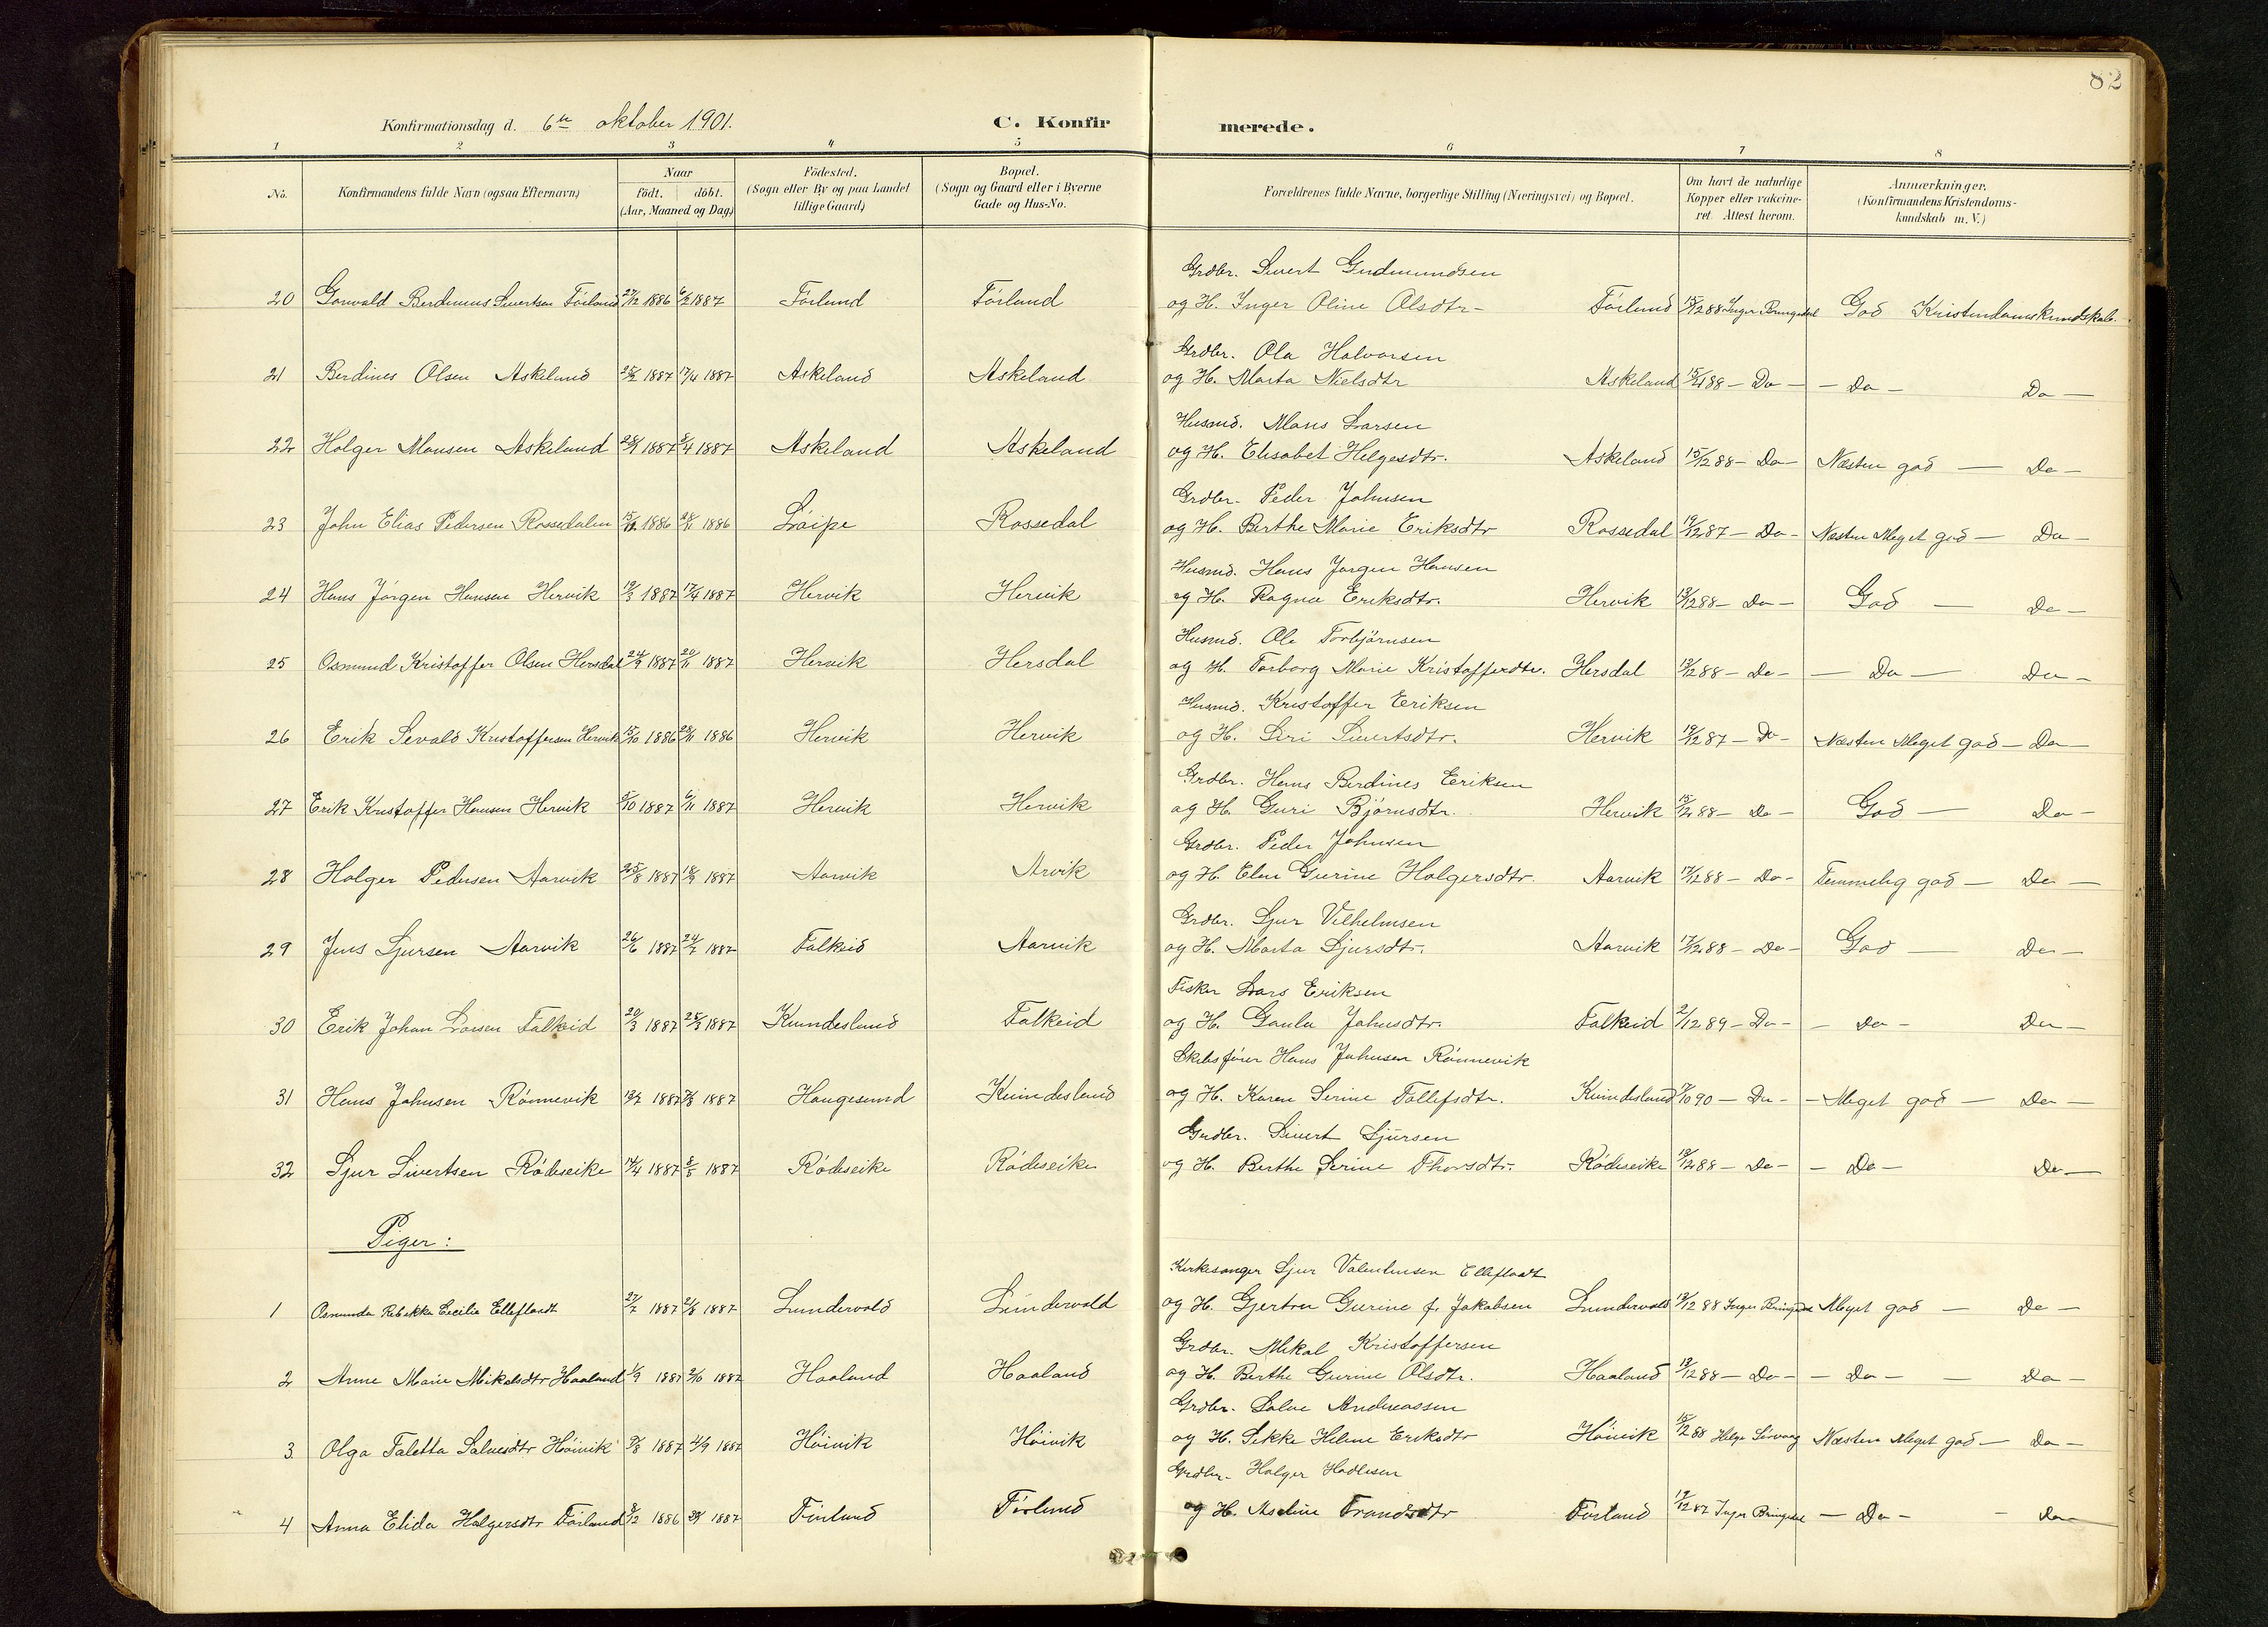 82
Konfirmationsdag d. 6te oktober 1901. C. Konfir merede.
1 2 3 4 5 6 7 8
No. Konfirmandens fulde Navn (ogsaa Efternavn) Naar födt. döbt. (Aar, Maaned og Dag) Födested. (Sogn eller By og paa Landet tillige Gaard) Bopæl. (Sogn og Gaard eller i Byerne Gade og Hus-No. Forældrenes fulde Navne, borgerlige Stilling (Næringsvei) og Bopæl. Om havt de naturlige Kopper eller vaccineret. Attest herom. Anmærkninger. (Konfirmandens Kristendomskundskab m. V.)
Grdbr. Sivert Gudmundsen
20 Berdinius Sivertsen Förland 27/12 1886 6/2 1887 Förland Förland og H. Inger Oline Olsdtr- Förland 15/12 88 Inger Bringedal God Kristendomskundskab.
Grdbr. Ola Halvorsen
21 Berdines Olsen Askeland 25/2 1887 17/4 1887 Askeland Askeland og H. Marta Nielsdtr Askeland 88 - Do - - Do - Do -
Husmd. Mons Larsen
22 Holger Monsen Askeland 1887 1887 Askeland Askeland og H. Elisabet Helgesdtr. Askeland 15/12 88 - Do - Næsten god - Do -
Grdbr. Peder Johnsen
23 John Elias Pedersen Rossedalen 1886 28/11 1886 Rossedal og H. Berthe Marie Eriksdtr Rossedal 19/12 87 - Do - Næsten Meget god - Do -
Husmd. Hans Jørgen Hansen
24 Hans Jörgen Hansen Hervik 19/3 1887 17/4 1887 Hervik Hervik og H. Ragna Eriksdtr. Hervik 19/12 88 - Do - God - Do -
Husmd. Ole Torbjörnsen
25 Osmund Kristoffer Olsen Hersdal 24/9 1887 20/11 1887 Hervik Hersdal og H. Torborg Marie Kristoffersdtr. Hersdal 88 - Do - - Do - Do -
Husmd. Kristoffer Eriksen
26 Erik Sevald Kristoffersen Hervik 15/10 1886 28/11 1886 Hervik Hervik og H. Siri Sivertsdtr. Hervik 19/12 87 - Do - Næsten Meget god - Do -
Grdbr. Hans Berdines Eriksen
27 Erik Kristoffer Hansen Hervik 5/10 1887 6/11 1887 Hervik Hervik og H. Guri Björnsdtr. Hervik 15/12 88 - Do - God - Do -
Grdbr. Peder Johnsen
28 Holger Pedersen Aarvik 25/8 1887 18/9 1887 Aarvik Arvik og H. Elen Gurine Holgersdtr. Aarvik 17/12 88 - Do - Temmelig god - Do -
Grdbr. Sjur Vilhelmsen
29 Jens Sjursen Aarvik 26/6 1887 24/7 1887 Falkeid Aarvik og H. Marta Sjursdtr. Aarvik 17/12 88 - Do - God - Do -
Fisker Lars Eriksen
30 Erik Johan Larsen Falkeid 20/3 1887 1887 Kvindesland Falkeid og H. Johnsdtr. Falkeid 2/12 89 - Do - - Do - Do -
Skibsförer Hans Johnsen Rönnevik
31 Hans Johnsen Rönnevik 1887 1887 Haugesund Kvindesland og H. Karen Serine Tollefsdtr. Kvindesland 90 - Do - - Meget god - Do -
Grdbr. Sivert Sjursen
32 Sjur Sivertsen Rödseike 14/4 1887 8/5 1887 Rödseike Rödseike og H. Berthe Serine Thorsdtr. Rödseike 19/12 88 - Do - - Do - Do -
Piger:
Kirkesanger Sjur Elleflaadt
1 Osmunda Rebekka Cecilia Elleflaadt 27/7 1887 1887 Lundervold Lundervold og H. Gjertrea Gurine f. Jakobsen Lundervold 19/12 88 Inger Bringedal Meget god - Do -
Grdbr. Mikal Kristoffersen
2 Anne Marie Mikalsdtr Haaland 1/9 1887 2/10 1887 Haaland Haaland og H. Berthe Gurine Olsdtr. Haaland 19/12 88 - Do - - Do - - Do -
Grdbr. Salve Andreassen
3 Olga Taletta Salvesdtr Höivik 1887 4/9 1887 Höivik Höivik og H. Sikke Helene Eriksdtr Höivik 15/12 88 Helge Næsten Meget god - Do -
Grdbr. Holger Hadlesen
4 Anna Elida Holgersdtr Förland 8/12 1886 1887 Förland Förland og H. Aseline Förland 19/12 87 Inger Bringedal - Do - - Do -